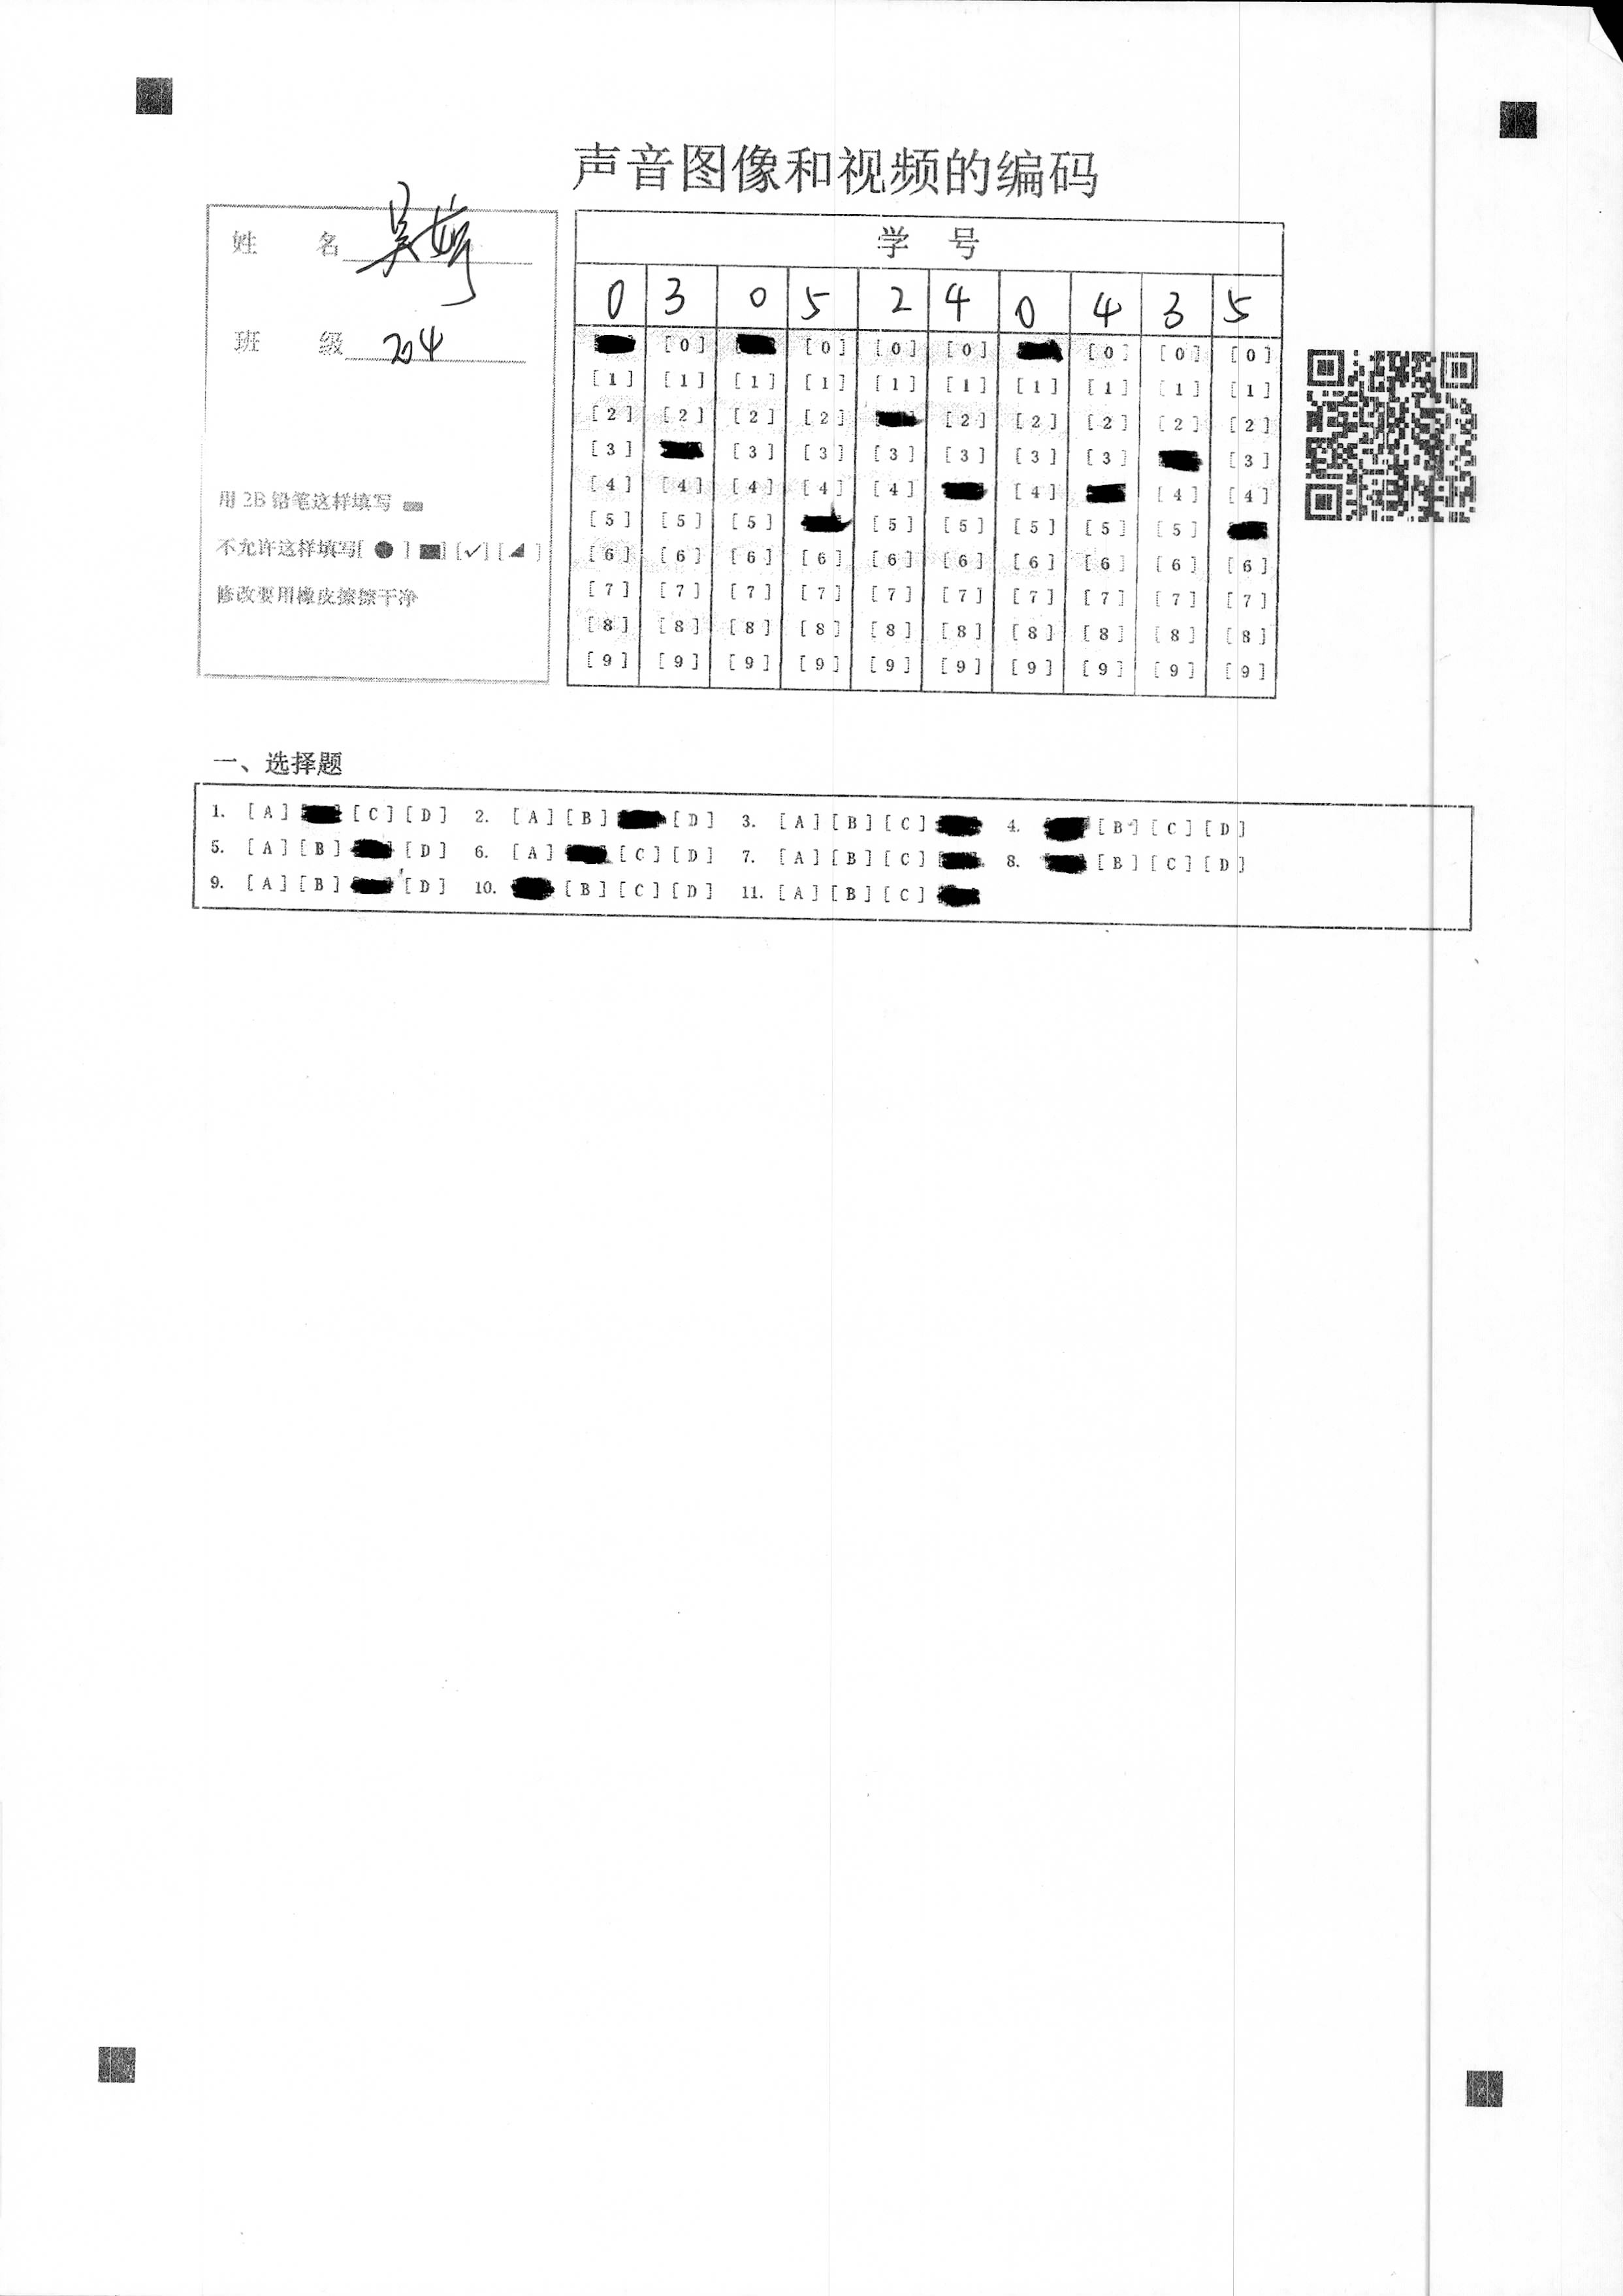 声音图像和视频的编码
姓 名 吴
班 级 204
用 2B 铅笔这样填写
不允许这样填写[ ● ] ■] [✓] [◢ ]
修改要用橡皮擦擦干净
学 号
0 3 0 5 2 4 0 4 3 5
[0] [0] [0] [0] [0] [0] [0]
[1] [1] [1] [1] [1] [1] [1] [1] [1] [1]
[2] [2] [2] [2] [2] [2] [2] [2] [2]
[3] [3] [3] [3] [3] [3] [3] [3]
[4] [4] [4] [4] [4] [4] [4] [4]
[5] [5] [5] [5] [5] [5] [5] [5]
[6] [6] [6] [6] [6] [6] [6] [6] [6] [6]
[7] [7] [7] [7] [7] [7] [7] [7] [7] [7]
[8] [8] [8] [8] [8] [8] [8] [8] [8] [8]
[9] [9] [9] [9] [9] [9] [9] [9] [9] [9]
一、选择题
1. [A] [C] [D] 2. [A] [B] [D] 3. [A] [B] [C] 4. [B] [C] [D]
5. [A] [B] [D] 6. [A] [C] [D] 7. [A] [B] [C] 8. [B] [C] [D]
9. [A] [B] [D] 10. [B] [C] [D] 11. [A] [B] [C]